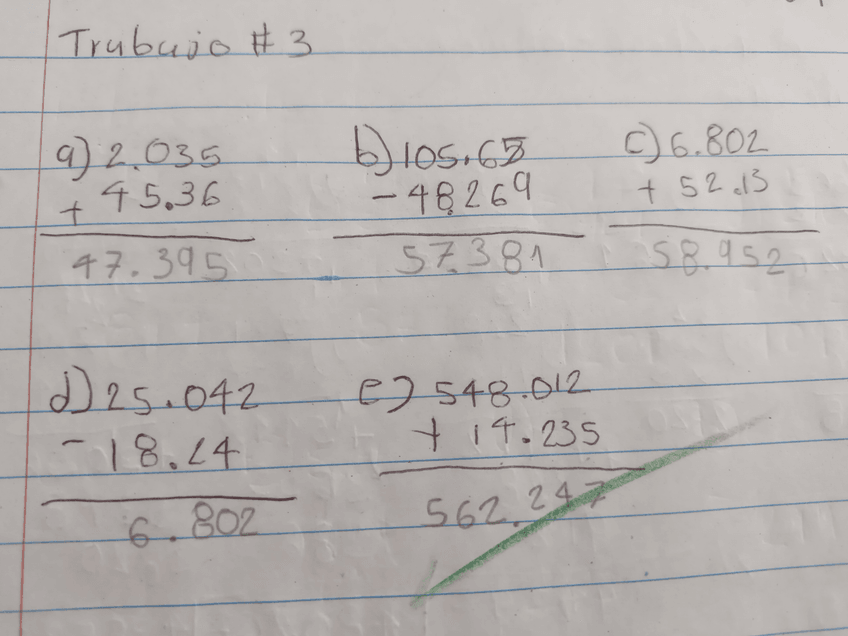 Trabajo # 3
a) 2.035
+ 45.36
47.395
b) 105.65
- 48.269
57.381
c) 6.802
+ 52.15
58.952
d) 25.042
- 18.24
6.802
e) 548.012
+ 14.235
562.247